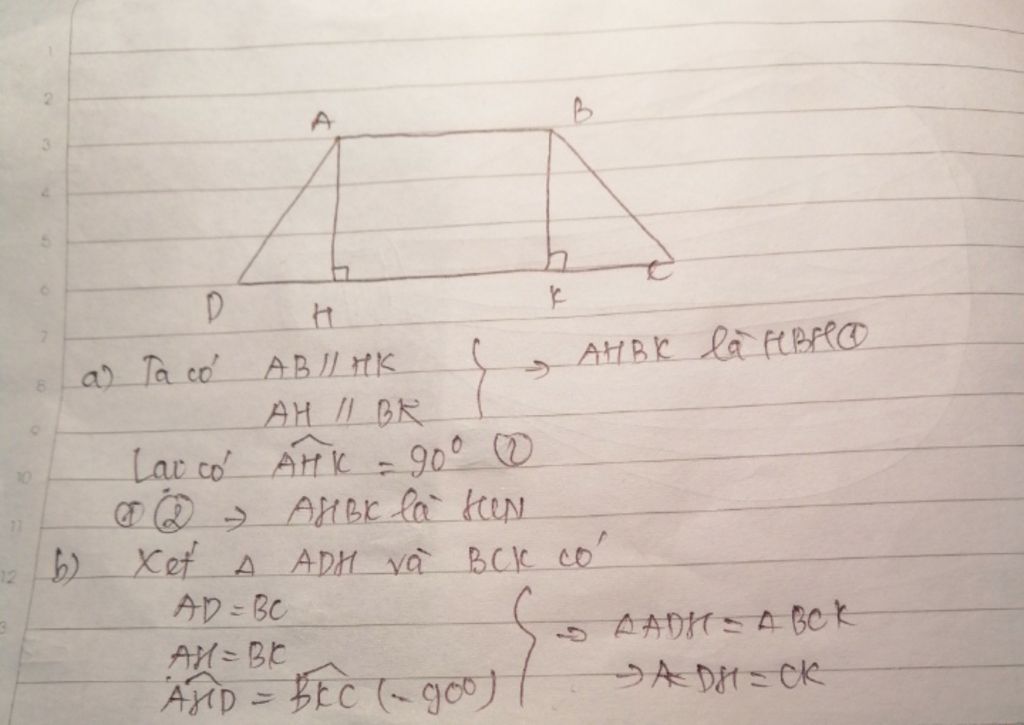 A B
D H K C
a) Ta có AB // HK
AH // BK } → AHBK là HBH ①
Lại có AHK = 90° ②
① ② → AHBK là HCN
b) Xét Δ ADH và BCK có
AD = BC
AH = BK
AHD = BKC (= 90°) } → ΔADH = ΔBCK
→ DH = CK